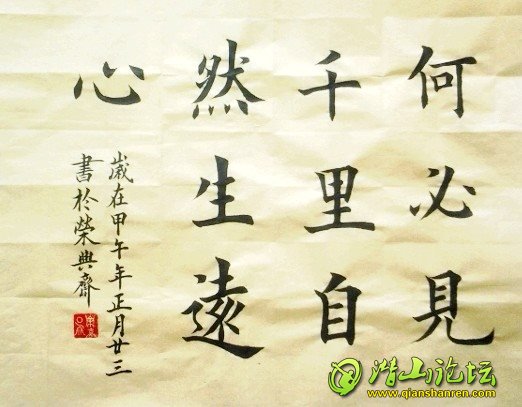 何必見
千里自
然生遠
心
歲在甲午年正月廿三
書於榮興齋
潜山论坛
www.qianshanren.com